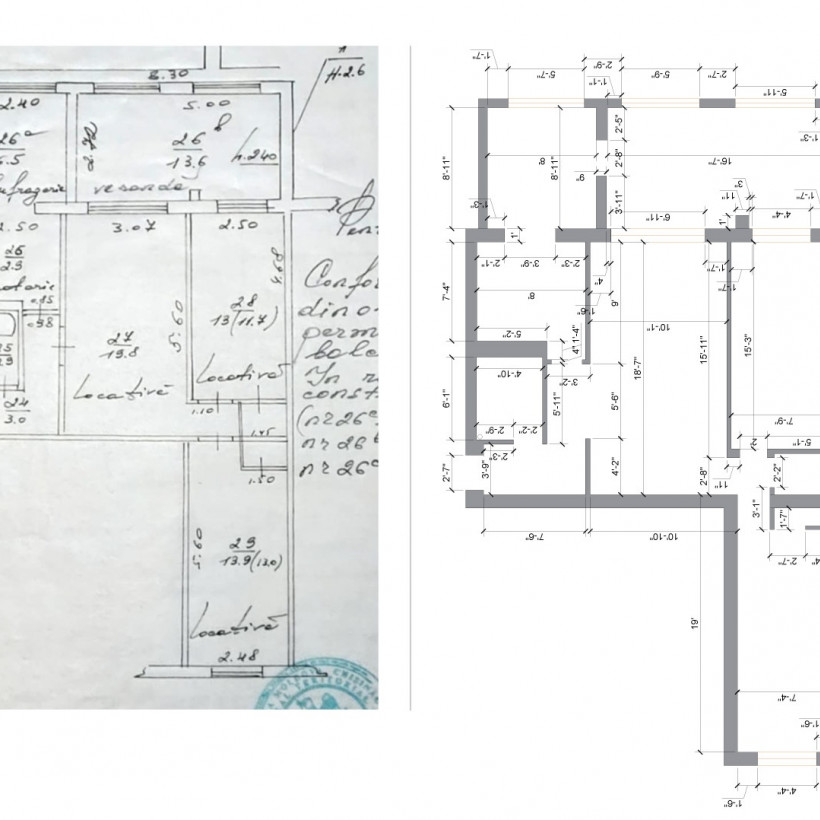 8.30
H-2.6
2.40
5.00
26ᵃ
6.5
2.72
26 в
13,6
h.240
veranda
2.50
3.07
2.50
4.68
26
2.9
0.15
0.98
5.60
28
13(11.7)
27
19.8
Locativă
Locativă
24
3.0
1.10
1.45
1.50
5.60
29
13.9(13.0)
Locativă
2.48
Confo
din o
perm
In
const
nr 26ᵃ
nr 26ᵇ
nr 26ᵃ
1'-7"
2'-9"
5'-7"
1'-1"
5'-9"
2'-7"
5'-11"
1'-3"
2'-5"
8'-11"
8'
8'-11"
2'-8"
16'-7"
9"
3'-11"
3"
11"
1'-7"
1'-3"
6'-11"
4'-4"
1'
1'
2'-1"
3'-9"
2'-3"
1'-7"
1'-7"
4"
7'-4"
8'
9'
1'-6"
10'-1"
5'-2"
1'-4"
4"
18'-7"
15'-11"
15'-3"
4'-10"
3'-2"
6'-1"
5'-11"
5'-6"
7'-9"
2'-9"
2'-2"
2"
5'-1"
2'-3"
2'-7"
3'-9"
4'-2"
2'-8"
11"
2'-2"
3'-1"
1'-7"
7'-6"
10'-10"
2'-7"
19'
7'-4"
1'-6"
4'-4"
1'-6"